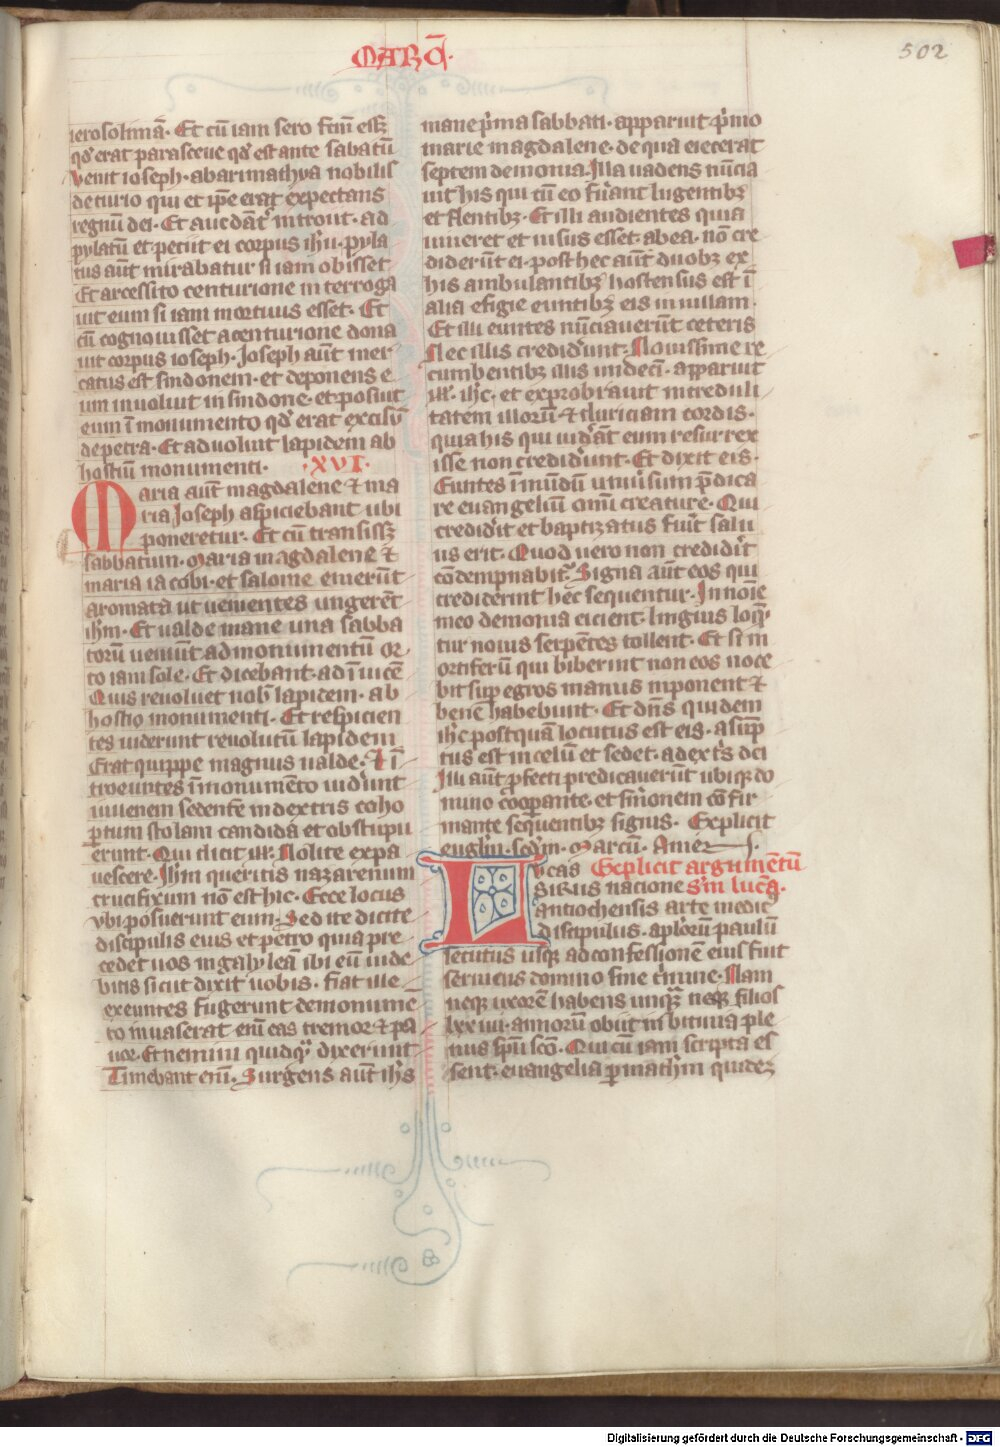 MARC̄.
502
ierosolimā. Et cū iam sero fcm̄ essꝫ
qd̛ erat parasceue qd̛ est ante sabatū
venit ioseph. abarimathya nobilis
decurio qui et ip̄e erat expectans
regnū dei. Et audāt̛ introut. ad
pylatū et petiit ei corpus ih̄u. pyla
tus aūt mirabatur si iam obisset
Et arcessito centurione interroga
uit eum si iam mortuus esset. Et
cū cognouisset acenturione dona
uit corpus ioseph. Joseph aūt mer
catus est sindonem. et deponens e
um inuoluit in sindone. et posuit
eum ī monumento qd̛ erat excisū
depetra. Et aduoluit lapidem ab
hostiū monumenti. .XVI.
Maria aūt magdalene ⁊ ma
ria Joseph aspiciebant ubi
poneretur. Et cū transissꝫ
sabbatum. Maria magdalene ⁊
maria iacobi. et salome emerūt
aromata ut uenientes ungerēt
ih̄m. Et ualde mane una sabba
torū ueniūt ad monumentū or
to iam sole. Et dicebant. ad īuicē
Quis reuoluet nob̄ lapidem. ab
hostio monumenti. Et respicien
tes uiderunt reuolutū lapidem
Erat quippe magnus ualde. Et ī
troeuntes īmonumēto uid̛unt
iuuenem sedentē indextris coho
ꝑtum stolam candidā et obstupu
erunt. Qui dicit ill̛. Nolite expa
uescere. Ih̄m queritis nazarenum
crucifixum nō est hic. Ecce locus
vbi posuerunt eum. Sed ite dicite
discipulis eius et petro quia pre
cedet uos in galyleā ibi eū uide
bitis sicut dixit uobis. fiat ille
exeuntes fugerunt demonumē
to inuaserat eni̅ eas tremor ⁊ pa
uor. Et nemini quidqꝫ dixerunt
Timebant eni̅. Surgens aūt ih̄s
mane p̛ma sabbati. apparuit p̛mo
marie magdalene. de qua eiecerat
septem demonia. Illa uadens nūcia
uit his qui cū eo fūant lugentibꝫ
et flentibꝫ. Et illi audientes quia
uiueret et uisus esset. abea. nō cre
diderūt ei. post hec aūt duobꝫ ex
his ambulantibꝫ hostensus est ī
alia efigie euntibꝫ eis in uillam.
Et illi euntes nūciauerūt ceteris
Nec illis credid̛unt. Nouissime re
cumbentibꝫ illis undecī. apparuit
ill̛. ih̄c. et exprobrauit increduli
tatem illorū ⁊ duriciam cordis.
quia his qui uid̛āt eum resurrex
isse non credid̛unt. Et dixit eis.
Euntes ī mūdū uniūsum p̄dica
re euangeliū om̄i creature. Qui
credid̛it et baptizatus fūit salu
us erit. Quod uero non credid̛it
cōdempnabit̛. Signa aūt eos qui
crediderint hec sequentur. In noīe
meo demonia eicient. linguis loqꝫ
tur nouis serpētes tollent. Et si m
ortiferū qui biberint non eos noce
bit sup̄ egros manus inponent ⁊
bene habebunt. Et dn̄s quidem
ih̄c postquā locutus est eis. asūp
tus est in celū et sedet. adext̛s dei
Illi aūt ꝓfecti predicauerūt ubiqꝫ do
mino coopante. et sm̄onem cōfir
mante sequentibꝫ signis. Explicit
euglīu. scd̄m. Marcū. Amen.
Lvcas Explicit argumētū
SIRUS nacione sm̄ lucā.
antiochensis arte medic̛
discipulus. aplōrū paulū
secutus usqꝫ ad confessionē eius fuit
seruiens domino sine c̛mine. Nam
neqꝫ uxorē habens unqꝫ neqꝫ filios
lxxiiii. annorū obiit in bitinia ple
nus spū scō. Qui cū iam scripta es
sent. euangelia ꝑ mathm̄ quidez
Digitalisierung gefördert durch die Deutsche Forschungsgemeinschaft - DFG